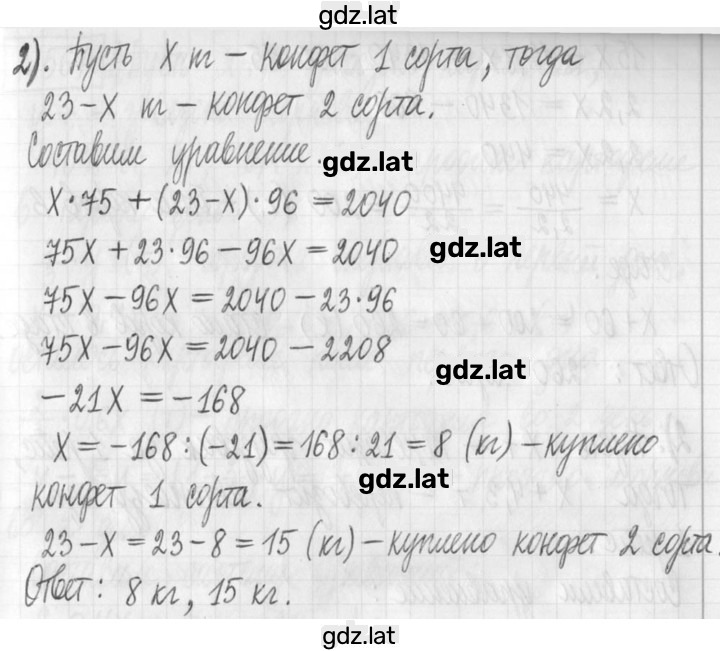 gdz.lat
2). Пусть x т – конфет 1 сорта, тогда
23 – x т – конфет 2 сорта.
Составим уравнение.
gdz.lat
x · 75 + (23 – x) · 96 = 2040
75x + 23 · 96 – 96x = 2040
gdz.lat
75x – 96x = 2040 – 23 · 96
75x – 96x = 2040 – 2208
gdz.lat
–21x = –168
x = –168 : (–21) = 168 : 21 = 8 (кг) – куплено
gdz.lat
конфет 1 сорта.
23 – x = 23 – 8 = 15 (кг) – куплено конфет 2 сорта.
Ответ: 8 кг, 15 кг.
gdz.lat